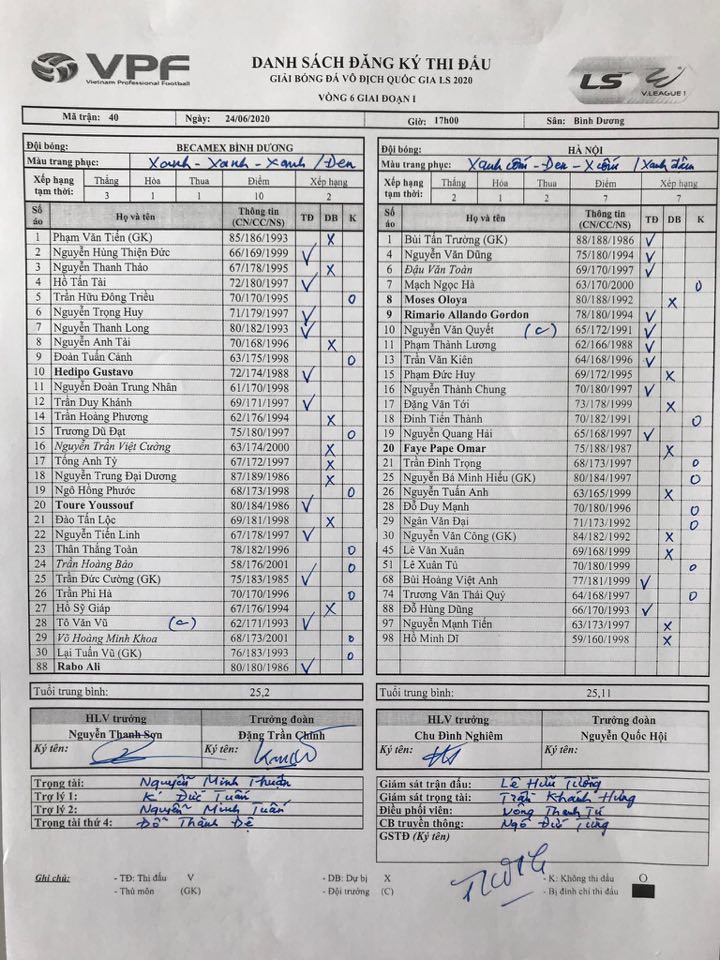 VPF
Vietnam Professional Football
DANH SÁCH ĐĂNG KÝ THI ĐẤU
GIẢI BÓNG ĐÁ VÔ ĐỊCH QUỐC GIA LS 2020
VÒNG 6 GIAI ĐOẠN I
LS V.LEAGUE 1
Mã trận: 40 Ngày: 24/06/2020 Giờ: 17h00 Sân: Bình Dương
Đội bóng: BECAMEX BÌNH DƯƠNG
Màu trang phục: Xanh - Xanh - Xanh / Đen
Xếp hạng tạm thời: Thắng Hòa Thua Điểm Xếp hạng
3 1 1 10 2
Số áo Họ và tên Thông tin (CN/CC/NS) TĐ DB K
1 Phạm Văn Tiến (GK) 85/186/1993 X
2 Nguyễn Hùng Thiện Đức 66/169/1999 V
3 Nguyễn Thanh Thảo 67/178/1995 X
4 Hồ Tấn Tài 72/180/1997 V
5 Trần Hữu Đông Triều 70/170/1995 O
6 Nguyễn Trọng Huy 71/179/1997 V
7 Nguyễn Thanh Long 80/182/1993 V
8 Nguyễn Anh Tài 70/168/1996 X
9 Đoàn Tuấn Cảnh 63/175/1998 O
10 Hedipo Gustavo 72/174/1988 V
11 Nguyễn Đoàn Trung Nhân 61/170/1998
12 Trần Duy Khánh 69/171/1997 V
14 Trần Hoàng Phương 62/176/1994 X
15 Trương Dũ Đạt 75/180/1997 O
16 Nguyễn Trần Việt Cường 63/174/2000 X
17 Tống Anh Tỷ 67/172/1997 X
18 Nguyễn Trung Đại Dương 87/189/1986 X
19 Ngô Hồng Phước 68/173/1998 O
20 Toure Youssouf 80/184/1986 V
21 Đào Tấn Lộc 69/181/1998 X
22 Nguyễn Tiến Linh 67/178/1997 V
23 Thân Thắng Toàn 78/182/1996 O
24 Trần Hoàng Bảo 58/176/2001 O
25 Trần Đức Cường (GK) 75/183/1985 V
26 Trần Phi Hà 70/170/1996 O
27 Hồ Sỹ Giáp 67/176/1994 X
28 Tô Văn Vũ (C) 62/171/1993 V
29 Võ Hoàng Minh Khoa 68/173/2001 O
30 Lại Tuấn Vũ (GK) 76/183/1993 O
88 Rabo Ali 80/180/1986 V
Tuổi trung bình: 25,2
HLV trưởng Trưởng đoàn
Nguyễn Thanh Sơn Đặng Trần Chỉnh
Ký tên: Ký tên:
Trọng tài: Nguyễn Minh Thuận
Trợ lý 1: Đức Tuấn
Trợ lý 2: Nguyễn Minh Tuấn
Trọng tài thứ 4: Đỗ Thành Đệ
Đội bóng: HÀ NỘI
Màu trang phục: Xanh cốm - Đen - X cốm / Xanh đậm
Xếp hạng tạm thời: Thắng Hòa Thua Điểm Xếp hạng
2 1 2 7 7
Số áo Họ và tên Thông tin (CN/CC/NS) TĐ DB K
1 Bùi Tấn Trường (GK) 88/188/1986 V
4 Nguyễn Văn Dũng 75/180/1994 V
6 Đậu Văn Toàn 69/170/1997 V
7 Mạch Ngọc Hà 63/170/2000 O
8 Moses Oloya 80/188/1992 X
9 Rimario Allando Gordon 78/180/1994 V
10 Nguyễn Văn Quyết (C) 65/172/1991 V
11 Phạm Thành Lương 62/166/1988 V
13 Trần Văn Kiên 64/168/1996 V
15 Phạm Đức Huy 69/172/1995 X
16 Nguyễn Thành Chung 70/180/1997 V
17 Đặng Văn Tới 73/178/1999 X
18 Đinh Tiến Thành 70/182/1991 O
19 Nguyễn Quang Hải 65/168/1997 V
20 Faye Pape Omar 75/188/1987 X
21 Trần Đình Trọng 68/173/1997 O
25 Nguyễn Bá Minh Hiếu (GK) 80/184/1997 O
26 Nguyễn Tuấn Anh 63/165/1999 X
28 Đỗ Duy Mạnh 70/180/1996 O
29 Ngân Văn Đại 71/173/1992 O
30 Nguyễn Văn Công (GK) 84/182/1992 X
45 Lê Văn Xuân 69/168/1999 X
51 Lê Xuân Tú 70/180/1999 O
68 Bùi Hoàng Việt Anh 77/181/1999 V
74 Trương Văn Thái Quý 64/168/1997 O
88 Đỗ Hùng Dũng 66/170/1993 V
97 Nguyễn Mạnh Tiến 63/173/1997 X
98 Hồ Minh Dĩ 59/160/1998 X
Tuổi trung bình: 25,11
HLV trưởng Trưởng đoàn
Chu Đình Nghiêm Nguyễn Quốc Hội
Ký tên: Ký tên:
Giám sát trận đấu: Lê Hữu Tường
Giám sát trọng tài: Trần Khánh Hưng
Điều phối viên: Nông Thanh Tú
CB truyền thông: Ngô Đức Tùng
GSTĐ (Ký tên)
Ghi chú: - TĐ: Thi đấu V - DB: Dự bị X - K: Không thi đấu O
- Thủ môn (GK) - Đội trưởng (C) - Bị đình chỉ thi đấu